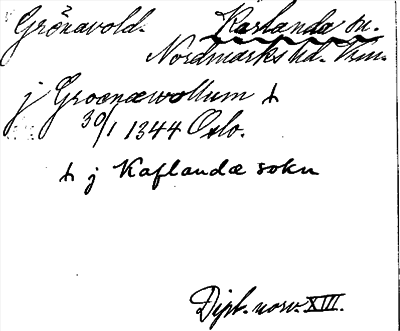 Grönavold. Karlanda sn.
Nordmarks hd. Vrm.
j Groenæwollum ⸔
30/1 1344 Oslo.
⸔ j Kaflandæ sokn
Dipl. norv. XVII.